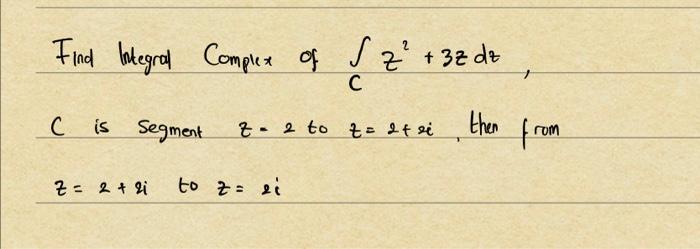 Find Integral Complex of ∫ z² + 3z dz ,
C
C is segment z = 2 to z = 2+2i , then from
z = 2 + 2i to z = 2i